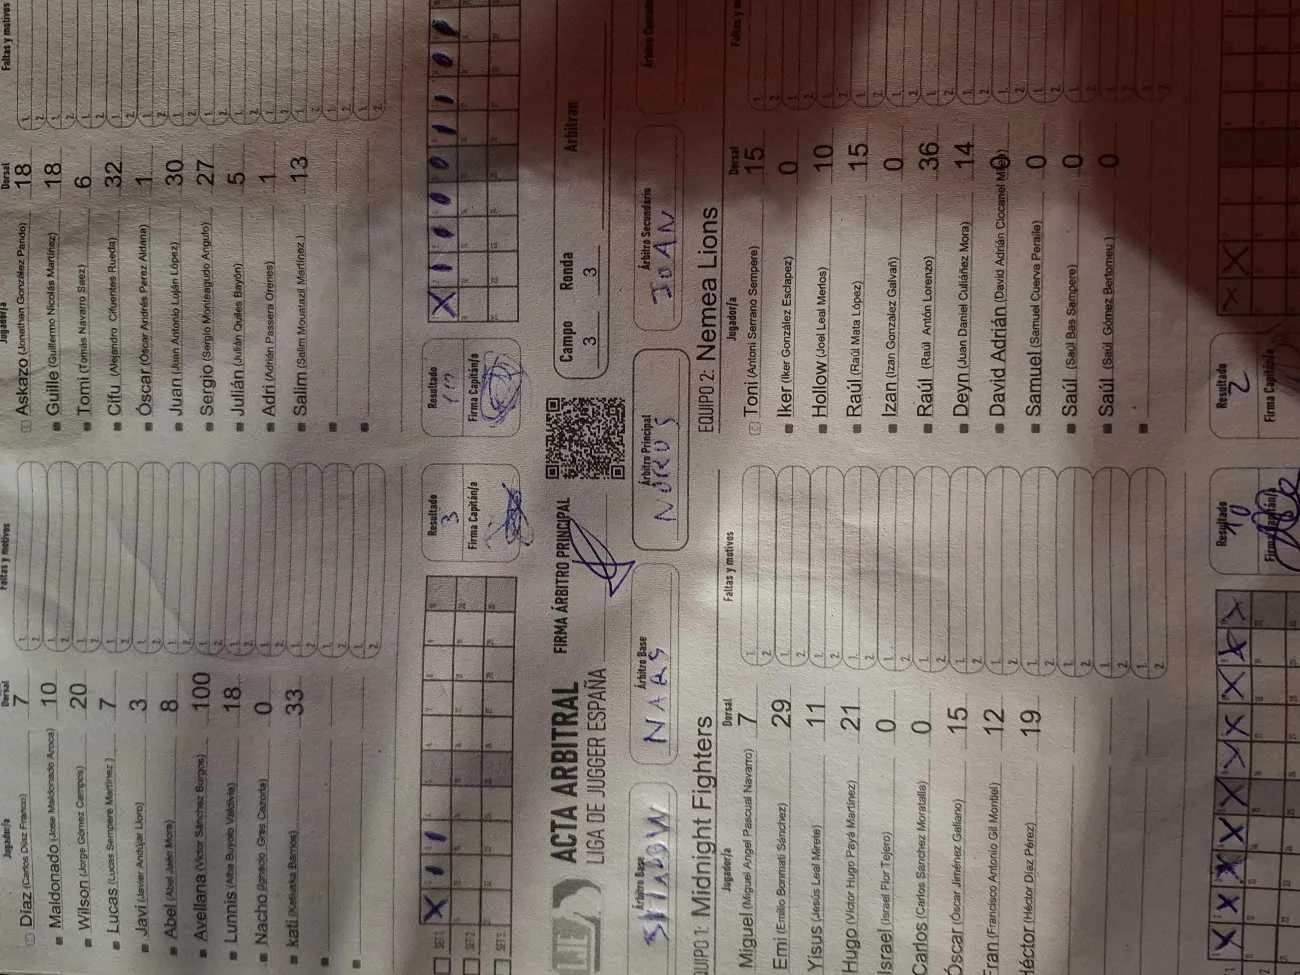 Jugador/a Dorsal Faltas y motivos
Díaz (Carlos Díaz Franco) 7
Maldonado (Jose Maldonado Aroca) 10
Wilson (Jorge Gómez Campos) 20
Lucas (Lucas Sempere Martínez ) 7
Javi (Javier Andújar Lloro) 3
Abel (Abel Jaén Mora) 8
Avellana (Víctor Sánchez Burgos) 100
Lunnis (Alba Buyolo Valdivia) 18
Nacho (Ignacio Gras Cazorla) 0
33
SET 1
SET 2
SET 3
Resultado
3
Firma Capitán/a
Jugador/a Dorsal Faltas y motivos
Askazo (Jonathan González Pando) 18
Guille (Guillermo Nicolás Martínez) 18
Tomi (Tomás Navarro Saez) 6
Cifu (Alejandro Cifuentes Rueda) 32
Óscar (Óscar Andrés Perez Aldana) 1
Juan (Juan Antonio Luján López) 30
Sergio (Sergio Monteagudo Angulo) 27
Julián (Julián Quiles Bayón) 5
Adri (Adrián Passera Orenes) 1
Salim (Salim Moustazil Martínez ) 13
Resultado
10
Firma Capitán/a
LJE
ACTA ARBITRAL
LIGA DE JUGGER ESPAÑA
FIRMA ÁRBITRO PRINCIPAL
Campo Ronda Arbitran
3 3
Árbitro Base
SHADOW
Árbitro Base
NARS
Árbitro Principal
NORUS
Árbitro Secundario
JOAN
EQUIPO 1: Midnight Fighters
Jugador/a Dorsal Faltas y motivos
Miguel (Miguel Angel Pascual Navarro) 7
Emi (Emilio Bonmatí Sánchez) 29
Yisus (Jesús Leal Mirete) 11
Hugo (Víctor Hugo Payá Martínez) 21
Israel (Israel Flor Tejero) 0
Carlos (Carlos Sánchez Moratalla) 0
Óscar (Óscar Jiménez Galiano) 15
Fran (Francisco Antonio Gil Montiel) 12
Héctor (Héctor Díaz Pérez) 19
Resultado
10
Firma Capitán/a
EQUIPO 2: Nemea Lions
Jugador/a Dorsal
Toni (Antoni Serrano Sempere) 15
Iker (Iker González Esclapez) 0
Hollow (Joel Leal Merlos) 10
Raúl (Raúl Mata López) 15
Izan (Izan Gonzalez Galvañ) 0
Raúl (Raúl Antón Lorenzo) 36
Deyn (Juan Daniel Culiáñez Mora) 14
David Adrián (David Adrián Ciocanel 0
Samuel (Samuel Cuerva Peralle) 0
Saúl (Saúl Bas Sempere) 0
Saúl (Saúl Gómez Bertomeu ) 0
Resultado
2
Firma Capitán/a